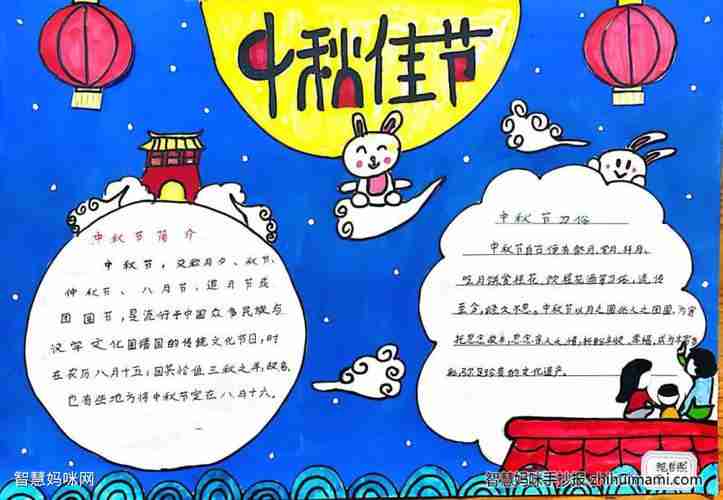 中秋佳节
中秋节简介
中秋节，又称月夕、秋节、
仲秋节、八月节、追月节或
团圆节，是流行于中国众多民族与
汉字文化圈诸国的传统文化节日，时
在农历八月十五；因其恰值三秋之半，故名。
也有些地方将中秋节定在八月十六。
中秋节习俗
中秋节自古便有祭月、赏月、拜月、
吃月饼、赏桂花、饮桂花酒等习俗，流传
至今，经久不息。中秋节以月之圆兆人之团圆，为寄
托思念故乡，思念亲人之情，祈盼丰收、幸福，成为丰富多
彩、弥足珍贵的文化遗产。
智慧妈咪网
智慧妈咪手抄报 zhihuimami.com